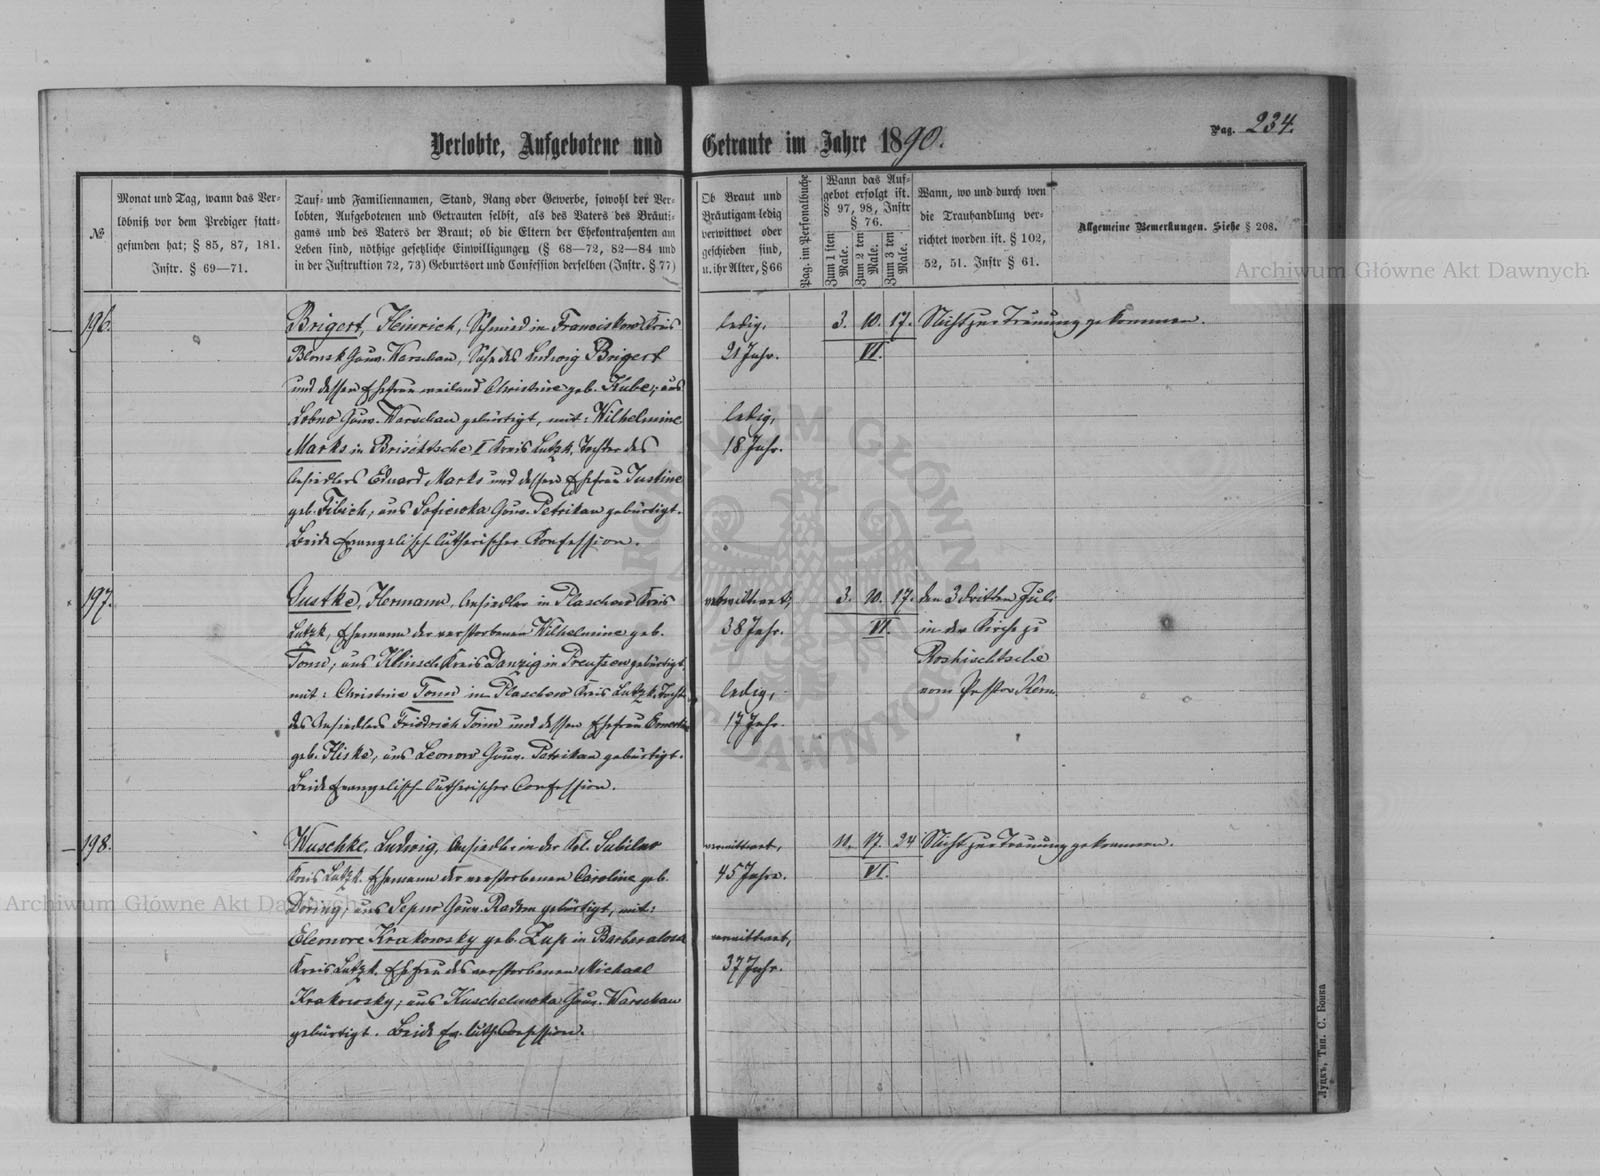 Verlobte, Aufgebotene und Getraute im Jahre 1890.
Pag. 234.
№
Monat und Tag, wann das Ver-
löbniß vor dem Prediger statt-
gefunden hat; § 85, 87, 181.
Instr. § 69—71.
Tauf- und Familiennamen, Stand, Rang oder Gewerbe, sowohl der Ver-
lobten, Aufgebotenen und Getrauten selbst, als des Vaters des Bräuti-
gams und des Vaters der Braut; ob die Eltern der Ehekontrahenten am
Leben sind, nöthige gesetzliche Einwilligungen (§ 68—72, 82—84 und
in der Instruktion 72, 73) Geburtsort und Confession derselben (Instr. § 77)
Ob Braut und
Bräutigam ledig
verwittwet oder
geschieden sind,
u. ihr Alter, § 66
Pag. im Personalbuche
Wann das Auf-
gebot erfolgt ist.
§ 97, 98, Instr
§ 76.
Zum 1 sten Male.
Zum 2 ten Male.
Zum 3 ten Male.
Wann, wo und durch wen
die Trauhandlung ver-
richtet worden ist. § 102,
52, 51. Instr § 61.
Allgemeine Bemerkungen. Siehe § 208.
196.
Brigert, Heinrich, Schmied in Franciskow Kreis
Blonsk Gouv. Warschau, Sohn des Ludwig Brigert
und dessen Ehefrau weiland Christine geb. Kube, aus
Lobno Gouv. Warschau gebürtigt, mit: Wilhelmine
Marks in Brischtsche I Kreis Lutzk, Tochter des
Ansiedlers Eduard Marks und dessen Ehefrau Justine
geb. Fibich, aus Sofiewka Gouv. Petrikau gebürtigt.
Beide Evangelisch-lutherischer Konfession.
ledig,
21 Jahr.
ledig,
18 Jahr.
3. 10. 17.
VI.
Nicht zur Trauung gekommen.
197.
Gustke, Hermann, Ansiedler in Plaschow Kreis
Lutzk, Ehemann der verstorbenen Wilhelmine geb.
Tonn, aus Klinsch Kreis Danzig in Preußen gebürtigt,
mit: Christine Tonn in Plaschow Kreis Lutzk, Tochter
des Ansiedlers Friedrich Tonn und dessen Ehefrau
geb. Kliske, aus Leonow Gouv. Petrikau gebürtigt.
Beide Evangelisch-lutherischer Confession.
verwittwet,
38 Jahr.
ledig,
17 Jahr.
3. 10. 17.
VI.
den 3 dritten Juli
in der Kirche zu
Roshischtsche
vom Pastor Kern.
198.
Wuschke, Ludwig, Ansiedler in der Kol. Jubilno
Kreis Lutzk. Ehemann der verstorbenen Caroline geb.
Döring, aus Sepno Gouv. Radom gebürtigt, mit:
Eleonore Krakowsky geb. Zup in
Kreis Lutzk. Ehefrau des verstorbenen Michael
Krakowsky, aus Gouv. Warschau
gebürtigt. Beide Ev. luth. Confession.
verwittwet,
45 Jahre.
verwittwet,
37 Jahr.
10. 17. 24
VI.
Nicht zur Trauung gekommen.
Луцкъ, Тип. С. Бонка
Archiwum Główne Akt Dawnych
Archiwum Główne Akt Dawnych
ARCHIWUM GŁÓWNE AKT DAWNYCH